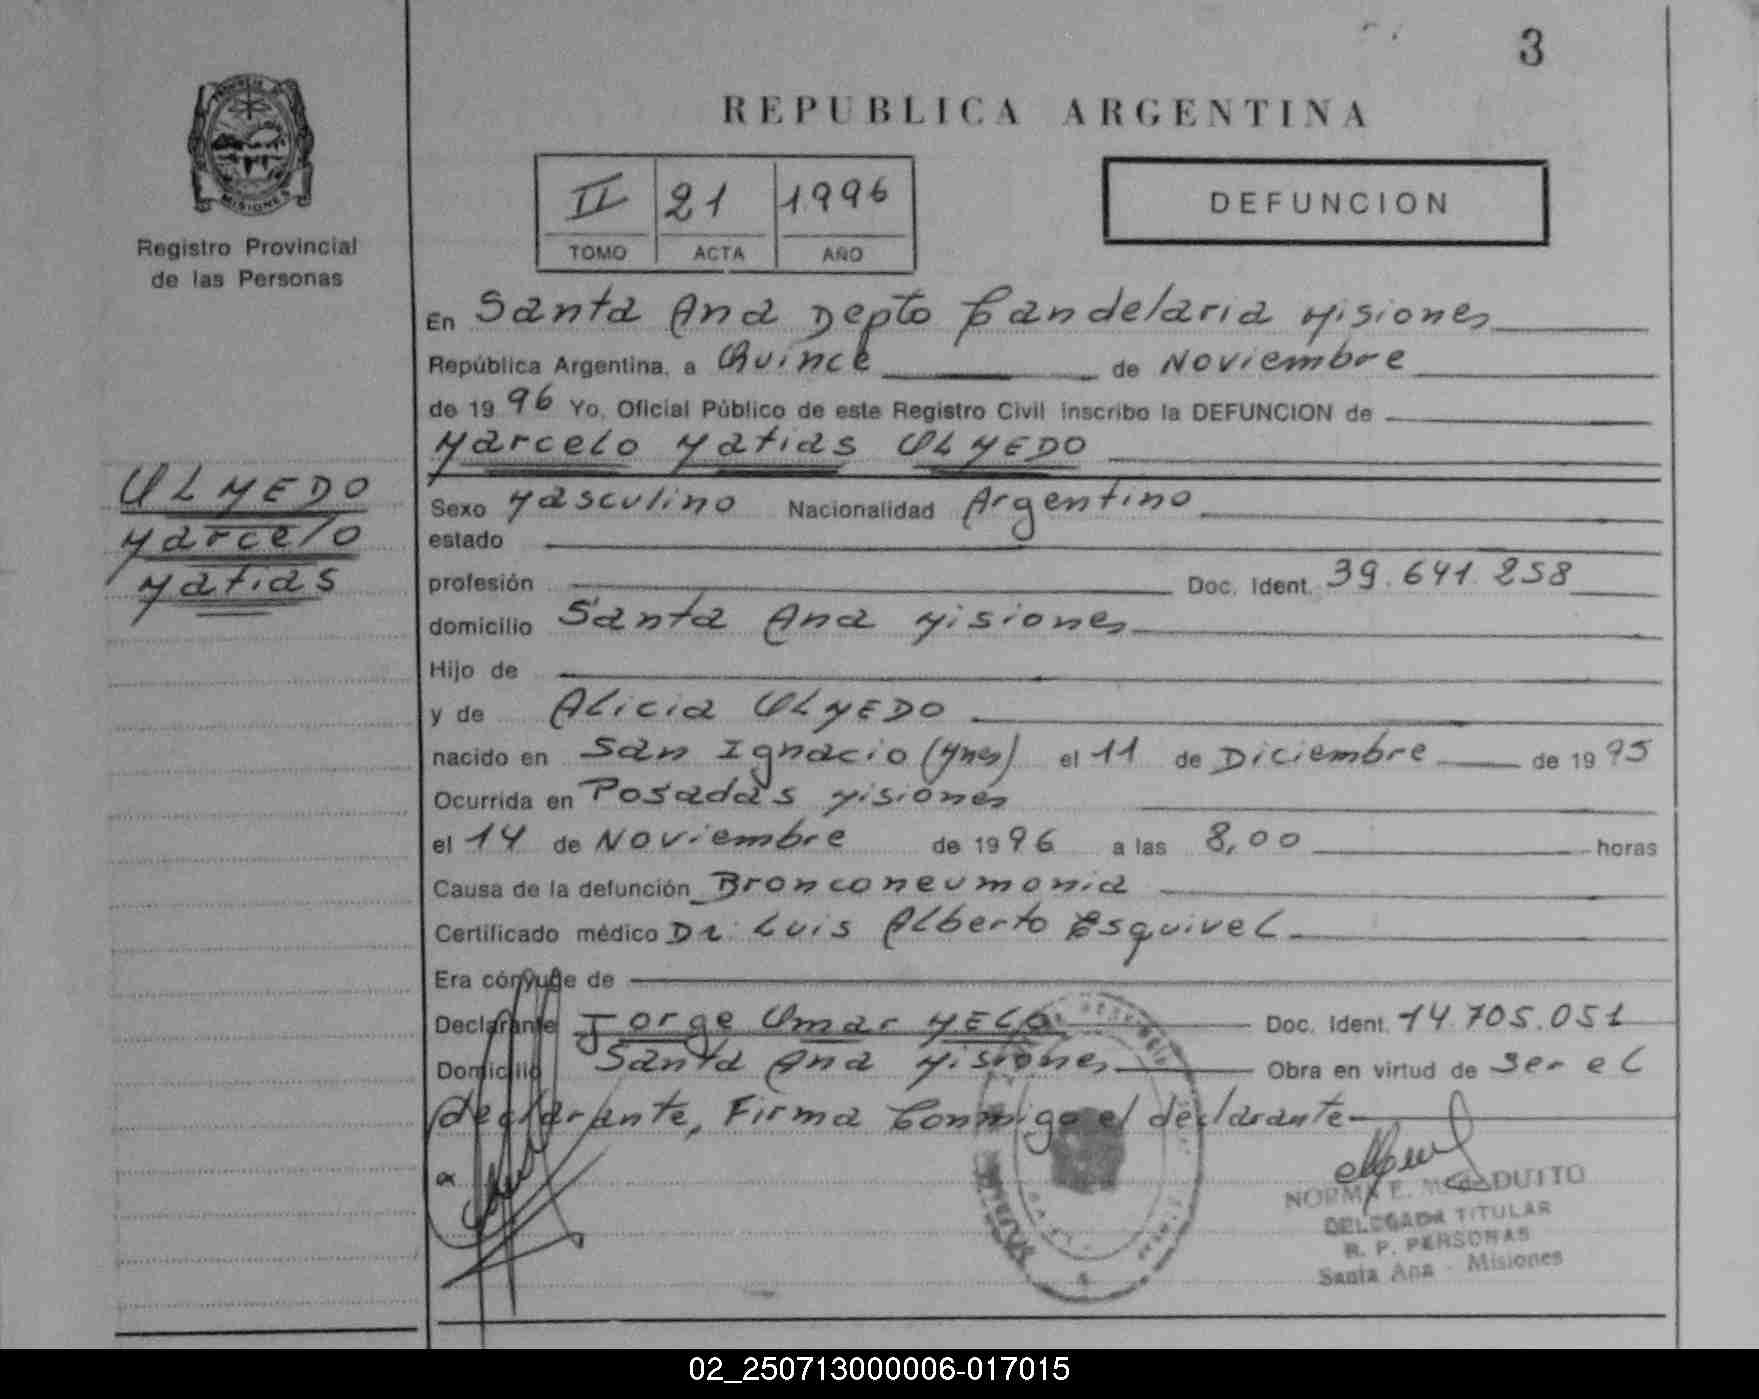 3
REPUBLICA ARGENTINA
MISIONES
Registro Provincial
de las Personas
II 21 1996
TOMO ACTA AÑO
DEFUNCION
En Santa Ana Depto Candelaria Misiones
República Argentina, a Quince de Noviembre
de 1996 Yo, Oficial Público de este Registro Civil inscribo la DEFUNCION de
Marcelo Matias OLMEDO
OLMEDO
Marcelo
Matias
Sexo Masculino Nacionalidad Argentino
estado
profesión Doc. Ident. 39.641.258
domicilio Santa Ana Misiones
Hijo de
y de Alicia OLMEDO
nacido en San Ignacio (Mnes) el 11 de Diciembre de 1995
Ocurrida en Posadas Misiones
el 14 de Noviembre de 1996 a las 8,00 horas
Causa de la defunción Bronconeumonia
Certificado médico Dr. Luis Alberto Esquivel
Era cónyuge de
Declarante Jorge Omar Doc. Ident. 14.705.051
Domicilio Santa Ana Misiones Obra en virtud de ser el
declarante, Firma Conmigo el declarante
NORMA E.
DELEGADA TITULAR
R. P. PERSONAS
Santa Ana - Misiones
02_250713000006-017015